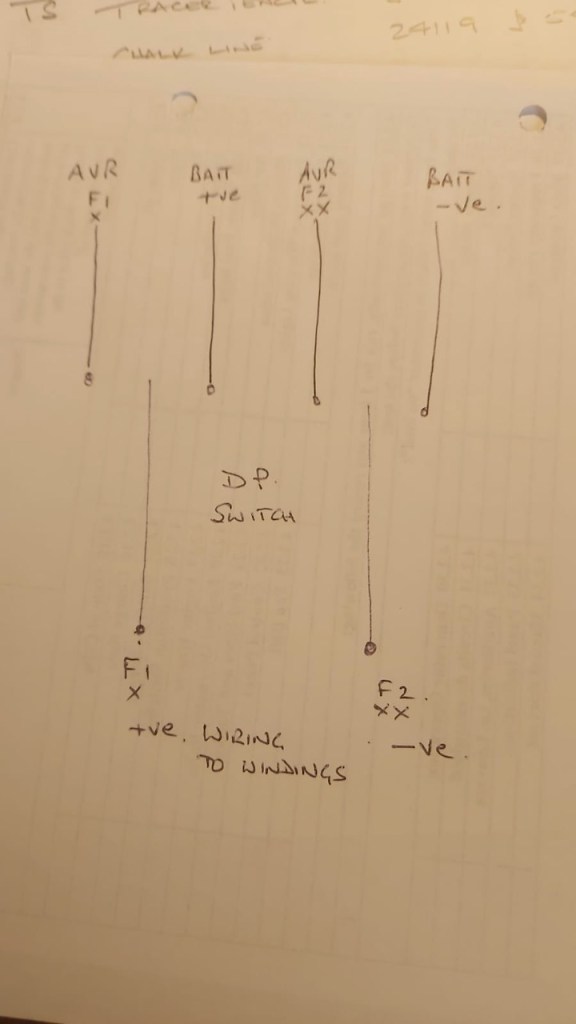 TS TRACER
24119
CHALK LINE
AVR
F1
X
BATT
+ve
AVR
F2
XX
BATT
-ve.
DP.
SWITCH
F1
X
+ve. WIRING
TO WINDINGS
F2.
XX
-ve.